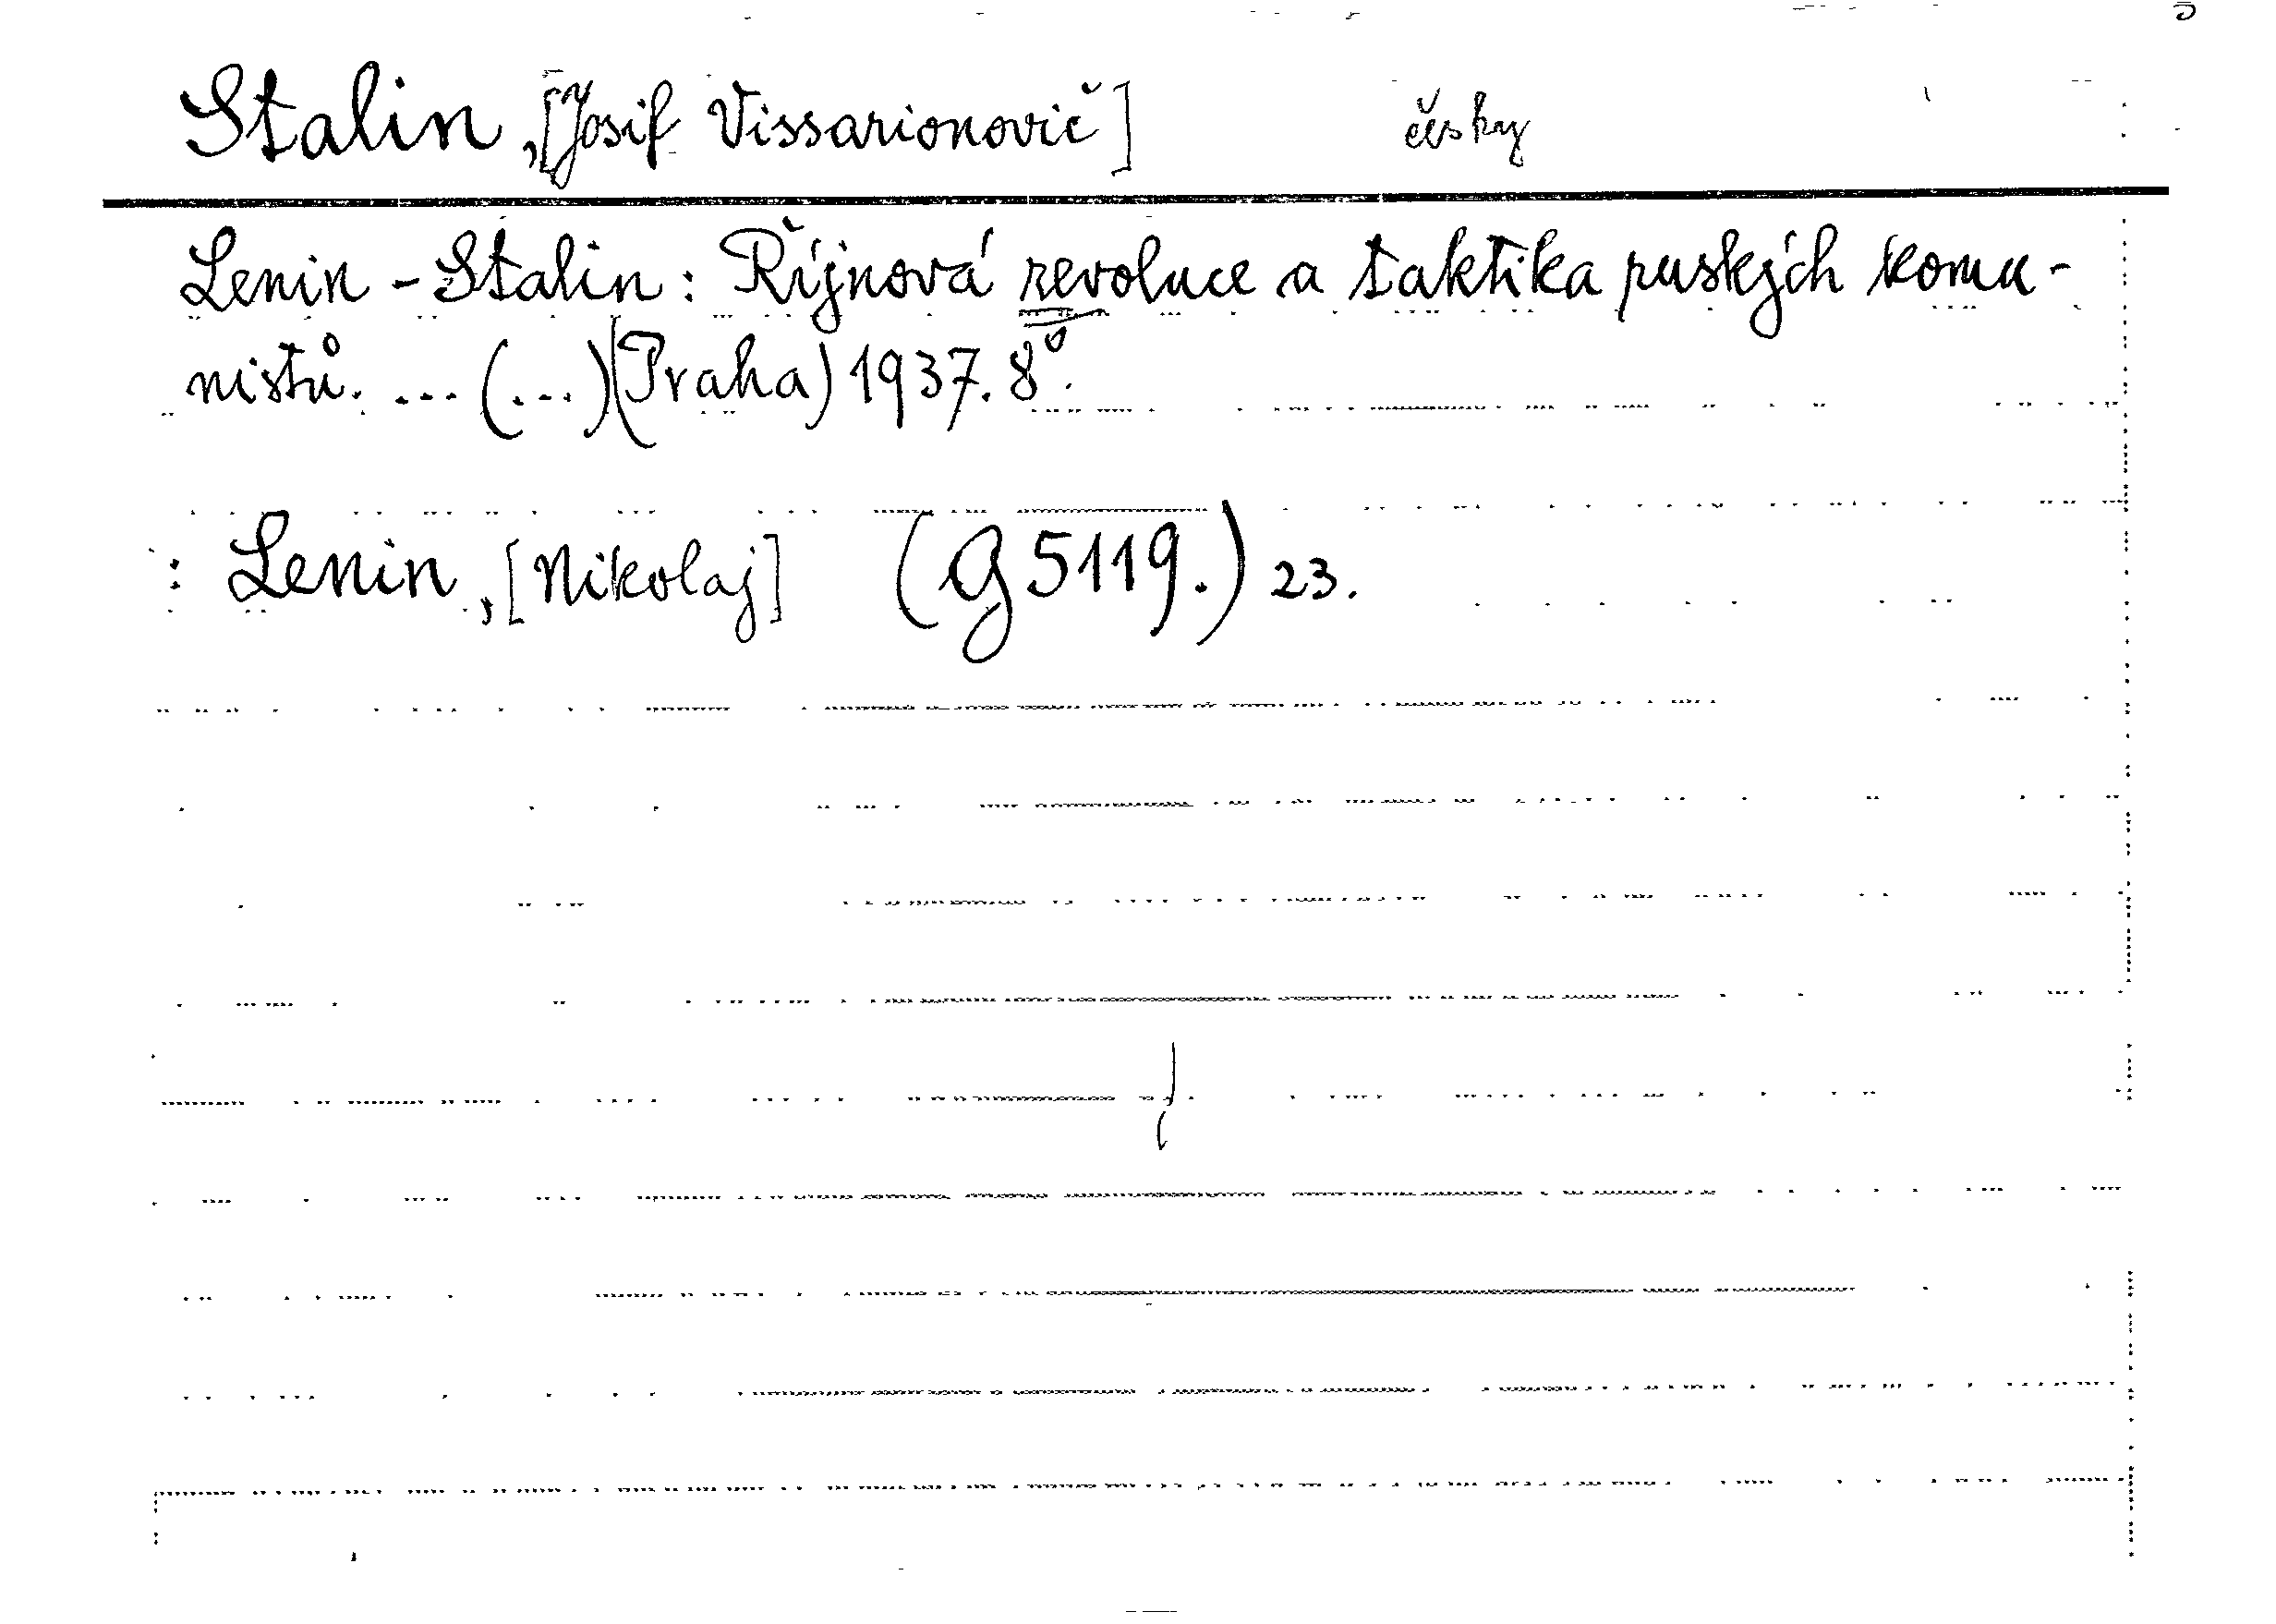 Stalin, [Josif Vissarionovič] česky
Lenin - Stalin: Říjnová revoluce a taktika ruských komu-
nistů. ... (...) (Praha) 1937. 8°.
: Lenin, [Nikolaj] (G 5119.) 23.